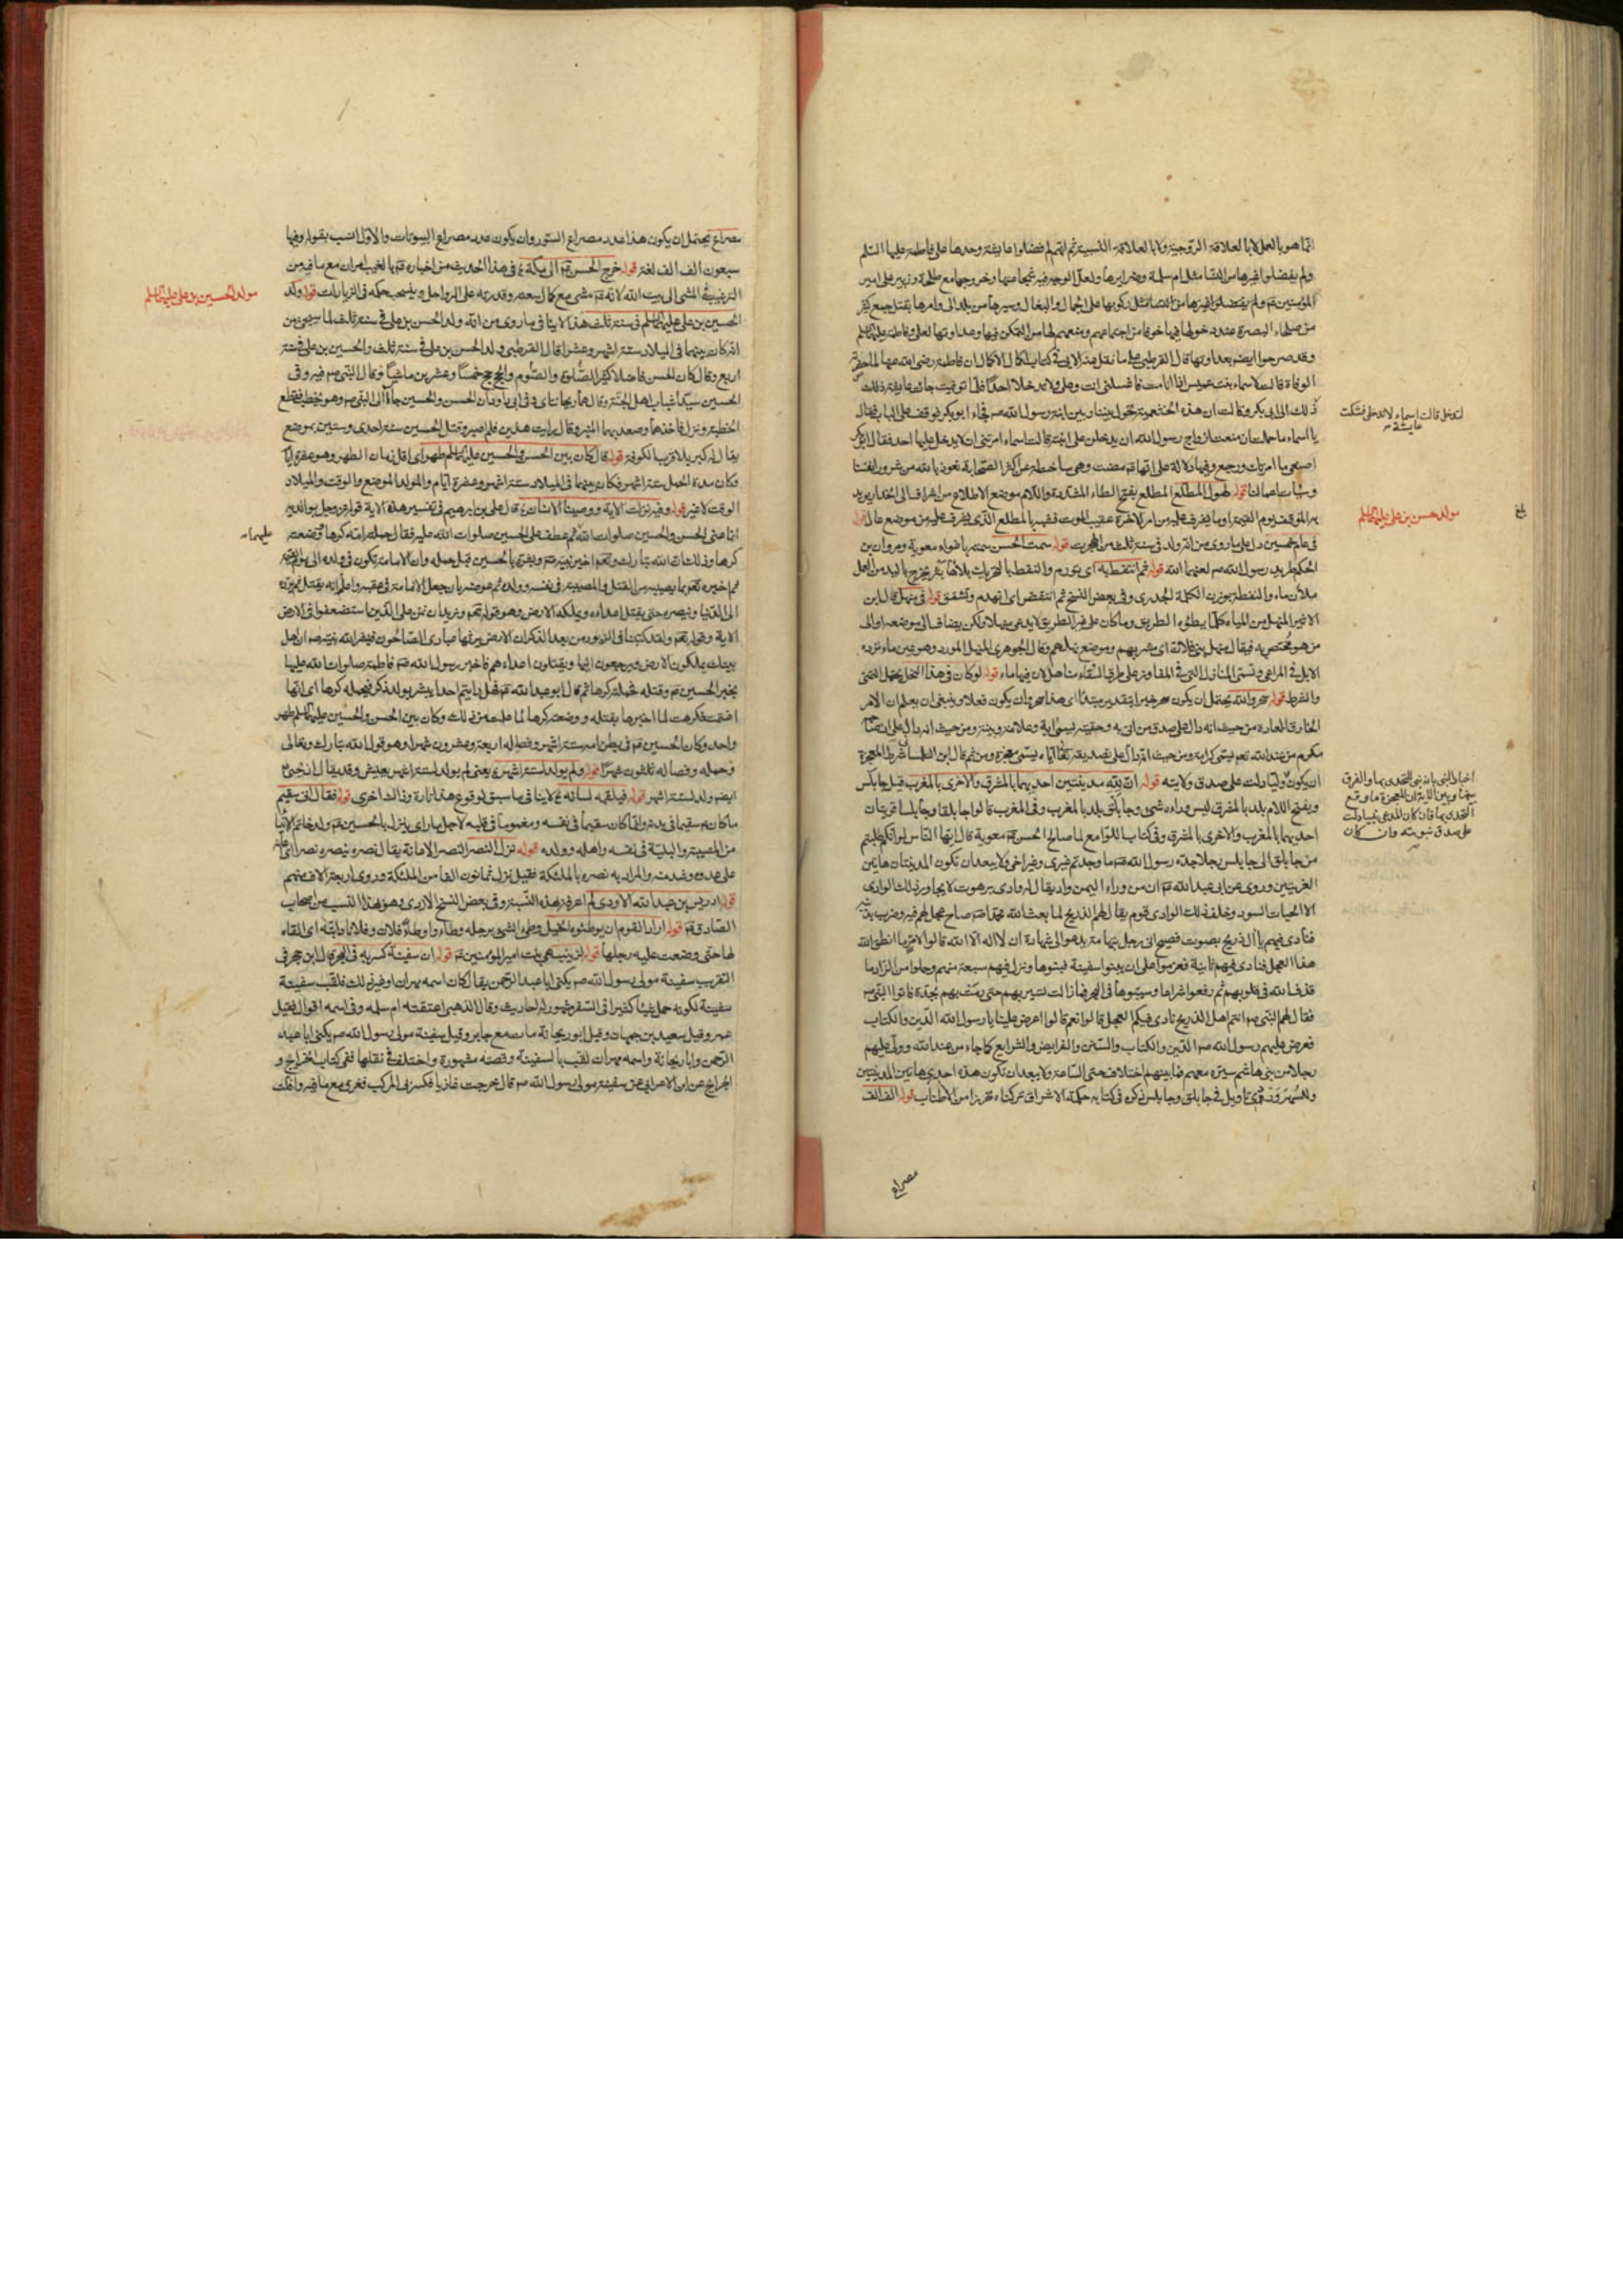 انما هو بالعمل لا بالعلاقة الزوجية ولا بالعلاقة النسبية ثم انهم لم فضلوا عايشة وحدها على فاطمة عليها السلم
ولم يفضلوا غيرها من النسا مثل ام سلمة
المؤمنين ع ولم يفضلوا غيرها من النسا مثل ركوبها على الجمال والبغال وسيرها من بلد الى
من صلحاء البصرة عند دخولها فيها خوفا من اجتماعهم ومنعهم لها من التمكن فيها وعداوتها لعلى وفاطمة عليهما السلم
وقد صرحوا ايضا بعداوتها قال القرطبى على ما نقل عنه الابى فى كتاب اكمال الاكمال ان فاطمة رضى الله عنها لما
الوفاة قالت لاسماء بنت عميس اذا انا مت فاغسلنى انت وعلى ولا تدخلا احدا فلما توفيت جاءت عايشة
ذلك الى ابى بكر وقالت ان هذه الخثعمية تحول بيننا وبين ابنة رسول الله ص فجاء ابو بكر فوقف على الباب فقال
يا اسماء ما حملك ان منعت ازواج رسول الله ان يدخلن على ابنته قالت اسماء امرتنى ان لا يدخل عليها احد فقال ابو بكر
اصنعى ما امرتك ورجع وفيها دلالة على انها ع مضت وهى ساخطة عن اكثر الصحابة نعوذ بالله من شرور انفسنا
وسيئات اعمالنا قوله لهول المطلع المطلع بفتح الطاء المشددة واللام موضع الاطلاع من اشراف الى انحدار يريد
به الموقف يوم القيمة او ما يشرف عليه من امر الاخرة عقيب الموت فشبه بالمطلع الذى يشرف عليه من موضع عال قوله
فى عام خمسين دل على ما روى من انه ولد فى سنة ثلث من الهجرت قوله سمت الحسن سمته باغواء معوية ومروان بن
الحكم طريد رسول الله ص لعنهما الله قوله ثم انتفط به اى تورم والنفط بالتحريك
ملآن ماء والنفطة بوزن الكلمة الجدرى وفى بعض النسخ ثم انتقض اى انهدم وتشقق قوله فى منهل قال ابن
الاثير المنهل من المياه كل ما يطؤه الطريق وما كان على غير الطريق لا يدعى منهلا ولكن يضاف الى موضعه او الى
من هو مختص به فيقال منهل بنى فلانة اى مشربهم وموضع نهلهم وقال الجوهرى المنهل المورد وهو عين ماء ترده
الابل فى المراعى وتسمى المنازل التى فى المفاوز على طرق السفار مناهل لان فيها ماء قوله لو كان فى هذا النخل يحتمل التمنى
والشرط قوله سحر والله يحتمل ان يكون سحر خبرا بتقدير مبتدا اى هذا سحر وان يكون فعلا وينبغى ان يعلم ان الامر
الخارق للعادة من حيث انه دال على صدق من اتى به وحقيته يسمى اية وعلامة وبينة ومن حيث انه دال على
مكرم من عند الله تعم يسمى كرامة ومن حيث انه دال على تصديقه تعالى اياه يسمى معجزة ومن ثم قال ابن الطلسا شرط المعجزة
ان يكون دلت على صدق ولايته قوله ان لله مدينتين احديهما بالمشرق والاخرى بالمغرب قيل جابلس
وبفتح اللام بلد بالمشرق ليس وراءه شىء وجابلق بلد بالمغرب وفى المغرب قالوا جابلقا وجابلسا قريتان
احديهما بالمغرب والاخرى بالمشرق وفى كتاب اللوامع لما صالح الحسن ع معوية قال ايها الناس لو انكم طلبتم
من جابلق الى جابلس رجلا جده رسول الله ص ما وجدتم غيرى وغير اخى ولا يبعد ان تكون المدينتان هاتين
القريتين وروى عن ابى عبد الله ع ان من وراء اليمن واد يقال له وادى برهوت لا يجاوز ذلك الوادى
الا الحيات السود وخلف ذلك الوادى قوم يقال لهم الذريح لما بعث الله محمدا ص صاح عجل لهم فيه وضرب بذنبه
فنادى فيهم يا آل ذريح بصوت فصيح اتى رجل بتهامة يدعو الى شهادة ان لا اله الا الله قالوا لامر ما انطق الله
هذا العجل فنادى فيهم ثانية فعزموا على ان يبنوا سفينة فبنوها ونزل فيهم سبعة منهم وحملوا من الزاد ما
قذف الله فى قلوبهم ثم رفعوا شراعا وسيبوها فى البحر فما زالت تسير بهم حتى رمت بهم بجدة فاتوا النبى ص
فقال لهم النبى ص انتم اهل الذريح نادى فيكم العجل قالوا نعم قالوا اعرض علينا يا رسول الله الدين والكتاب
فعرض عليهم رسول الله ص الدين والكتاب والسنن والفرايض والشرايع كما جاء من عند الله وولى عليهم
رجلا من بنى هاشم سيره معهم فما بينهم اختلاف حتى الساعة ولا يبعد ان تكون هذه احدى هاتين المدينتين
وللسهروردى تاويل فى جابلق وجابلس ذكره فى كتابه حكمة الاشراق تركناه تحرزا من الاطناب قوله الف الف
مصراع
لا تدخلى قالت اسماء لا تدخلى فشكت
عايشة
مولد حسن بن على عليهما السلم
بلغ
على صدق نبوته وان كان
مصراع يحتمل ان يكون هذا عدد مصراع السور وان يكون عدد مصراع البيوتات والاول انسب بقوله وفيها
سبعون الف الف لغة قوله خرج الحسن ع الى مكة فى هذا الحديث من اخباره ع بالغيب امران مع ما فيه من
الترغيب فى المشى الى بيت الله لانه ع مشى مع كمال وقدرته على الرواحل ويستحب حكمه فى الزيارات قوله ولد
الحسين بن على عليهما السلم فى سنة ثلث هذا لا ينافى ما روى من انه ولد الحسن بن على فى سنة ثلث لما سيجىء من
انه كان بينهما فى الميلاد ستة اشهر وعشرا قال القرطبى ولد الحسن بن على فى سنة ثلث والحسين بن على فى سنة
اربع وقال كان الحسن فاضلا كثير الصلوة والصوم والحج حج خمسا وعشرين ماشيا وقال النبى ص فيه وفى
الحسين سيدا شباب اهل الجنة وقال هما ريحانتاى وان الحسن والحسين جاآ الى النبى ص وهو يخطب فقطع
الخطبة ونزل فاخذهما وصعد بهما المنبر وقال رايت هذين فلم اصبر وقتل الحسين سنة احدى وستين بموضع
يقال له كربلا قرب الكوفة قوله قال كان بين الحسن والحسين عليهما السلم طهر اى اقل زمان الطهر وهو عشرة ايام
وكان مدة الحمل ستة اشهر فكان بينهما فى الميلاد ستة اشهر وعشرة ايام والمولد الموضع والوقت والميلاد
الوقت لا غير قوله وفيه نزلت الاية ووصينا الانسان قال على بن ابراهيم فى تفسير هذه الاية قوله عز وجل بوالديه
انما عنى الحسن والحسين صلوات الله ثم عطف على الحسين صلوات الله عليه فقال حملته امه كرها ووضعته
كرها وذلك ان الله تبارك وتعم اخبر نبيه ص وبشره بالحسين قبل حمله وان الامامة تكون فى ولده الى يوم القيمة
ثم اخبره تعم بما يصيبه من القتل والمصيبة فى نفسه وولده ثم عوضه بان جعل الامامة فى عقبه واعلمه انه يقتل ثم يرده
الى الدنيا وينصره حتى يقتل اعداءه ويملكه الارض وهو قوله تعم ونريد ان نمن على الذين استضعفوا فى الارض
الاية وقوله تعم ولقد كتبنا فى الزبور من بعد الذكر ان الارض يرثها عبادى الصالحون فبشر الله نبيه ص ان اهل
بيتك يملكون الارض ويرجعون اليها ويقتلون اعداءهم فاخبر رسول الله ص فاطمة صلوات الله عليها
بخبر الحسين ع وقتله فحملته كرها ثم قال ابو عبد الله ع فهل رايتم احدا يبشر بولد ذكر فيحمله كرها اى انها
اغتمت فكرهت لما اخبرها بقتله ووضعته كرها لما علمت من ذلك وكان بين الحسن والحسين عليهما السلم طهر
واحد وكان الحسين ع فى بطن امه ستة اشهر وفصاله اربعة وعشرون شهرا وهو قول الله تبارك وتعالى
وحمله وفصاله ثلثون شهرا قوله ولم يولد لستة اشهر يعنى لم يولد لستة اشهر يعيش وقد يقال ان يحيى
ايضا ولد لستة اشهر قوله فيلقمه لسانه لا ينافى ما سبق لوقوع هذا تارة وذاك اخرى قوله فقال انى سقيم
ما كان ع سقيما فى بدنه وانما كان سقيما فى نفسه ومغموما فى قلبه لاجل ما راى ينزل بالحسين ع ولد خاتم الانبيا
من المصيبة والبلية فى نفسه واهله وولده قوله نزل النصر النصر الاعانة يقال نصره ينصره نصرا
على عدوه والمراد به نصره بالملئكة فقيل نزل ثمانون الفا من الملئكة وروى اربعة الاف منهم
قوله ادريس بن عبد الله الاودى لم اعرفه بهذه النسبة وفى بعض النسخ الازدى وهو بهذا النسب من اصحاب
الصادق ع قوله اراد القوم ان يوطئوه الخيل وطئ الشىء برجله وطاء واوطاء فلان وفلانا دابته اى القاه
لها حتى وضعت عليه رجلها قوله ان زينب هى بنت امير المؤمنين ع قوله ان سفينة كسر به فى البحر قال ابن حجر فى
التقريب سفينة مولى رسول الله ص يكنى ابا عبد الرحمن يقال كان اسمه مهران او غير ذلك فلقب سفينة
سفينة لكونه حمل شيئا كثيرا فى السفر مشهور له احاديث وقال الذهبى اعتقته ام سلمه وفى اسمه اقوال فقيل
عمر وقيل سعيد بن جهان وقيل ابو ريحانة مات مع جابر وقيل سفينة مولى رسول الله ص يكنى ابا عبد
الرحمن وابا ريحانة واسمه مهران لقب بالسفينة وقصته مشهورة واختلف فى نقلها ففى كتاب الخرايج و
الجرايح عن ابن الاعرابى عن سفينة مولى رسول الله ص قال خرجت غازيا فكسر بى المركب فغرق مع ما فيه وافلت
مولد الحسين بن على عليهما السلم
عليهما